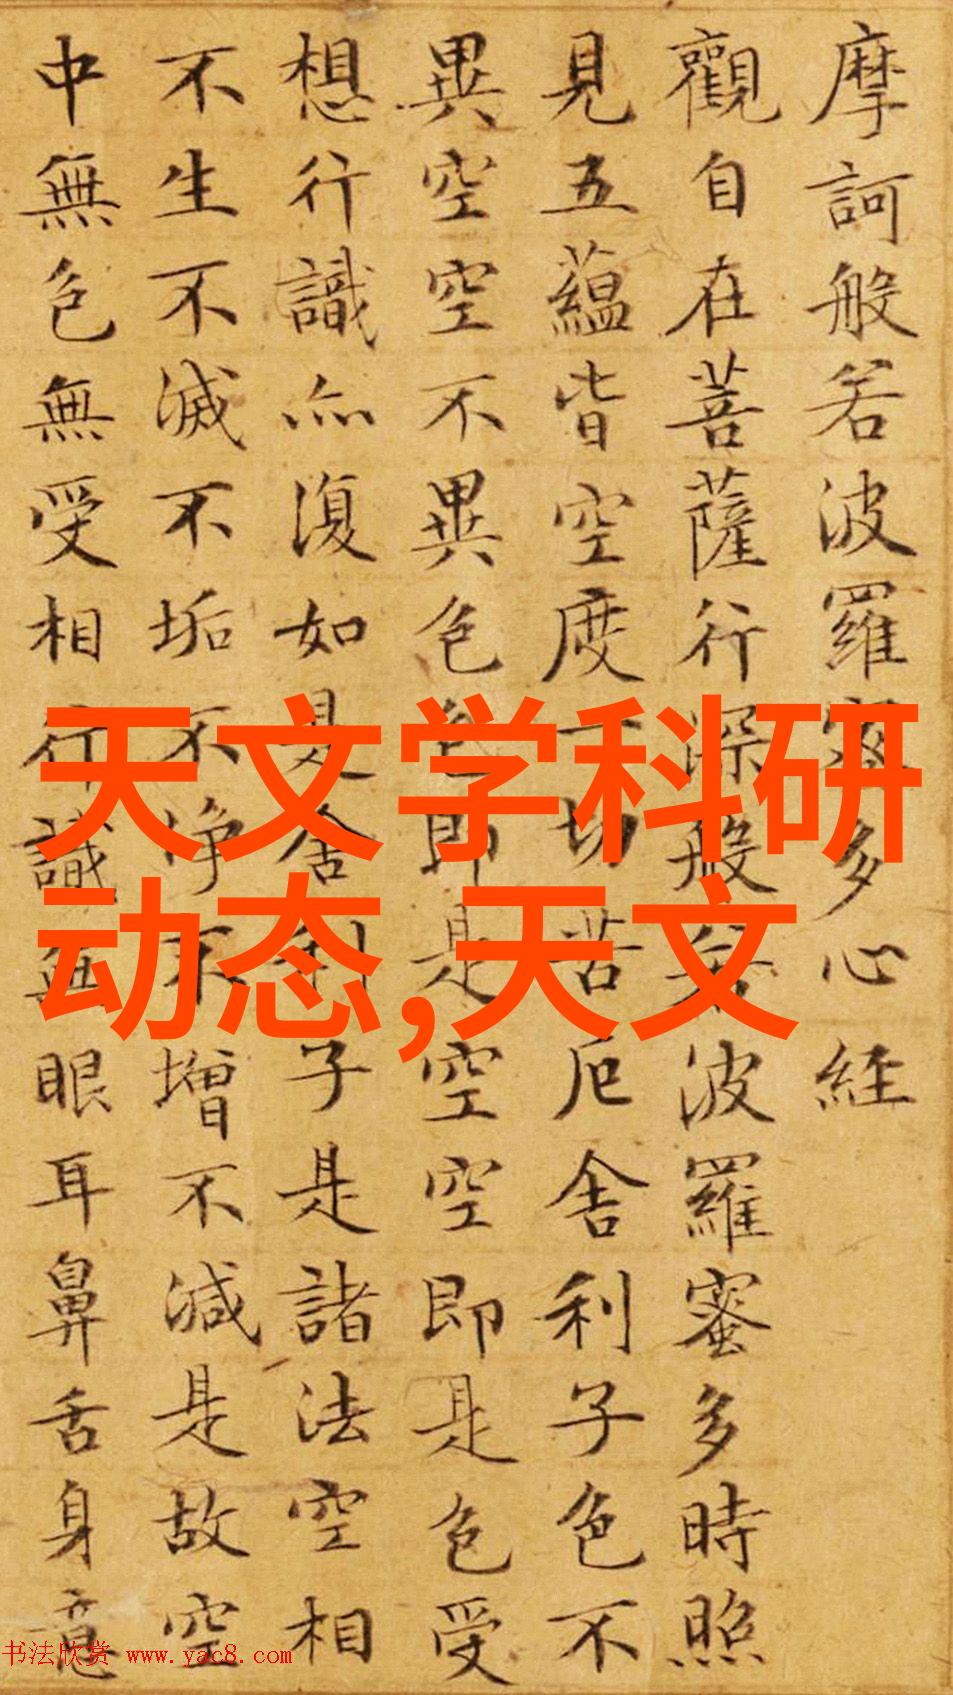 摩訶般若波羅蜜多心経
觀自在菩薩行深般若波羅蜜多時照
見五蘊皆空度一切苦厄舍利子色不
異空空不異色色即是空空即是色受
想行識亦復如是舍利子是諸法空相
不生不滅不垢不淨不增不減是故空
中無色無受相行識無眼耳鼻舌身意
天文学科研
动态,天文
书法欣赏 www.yac8.com